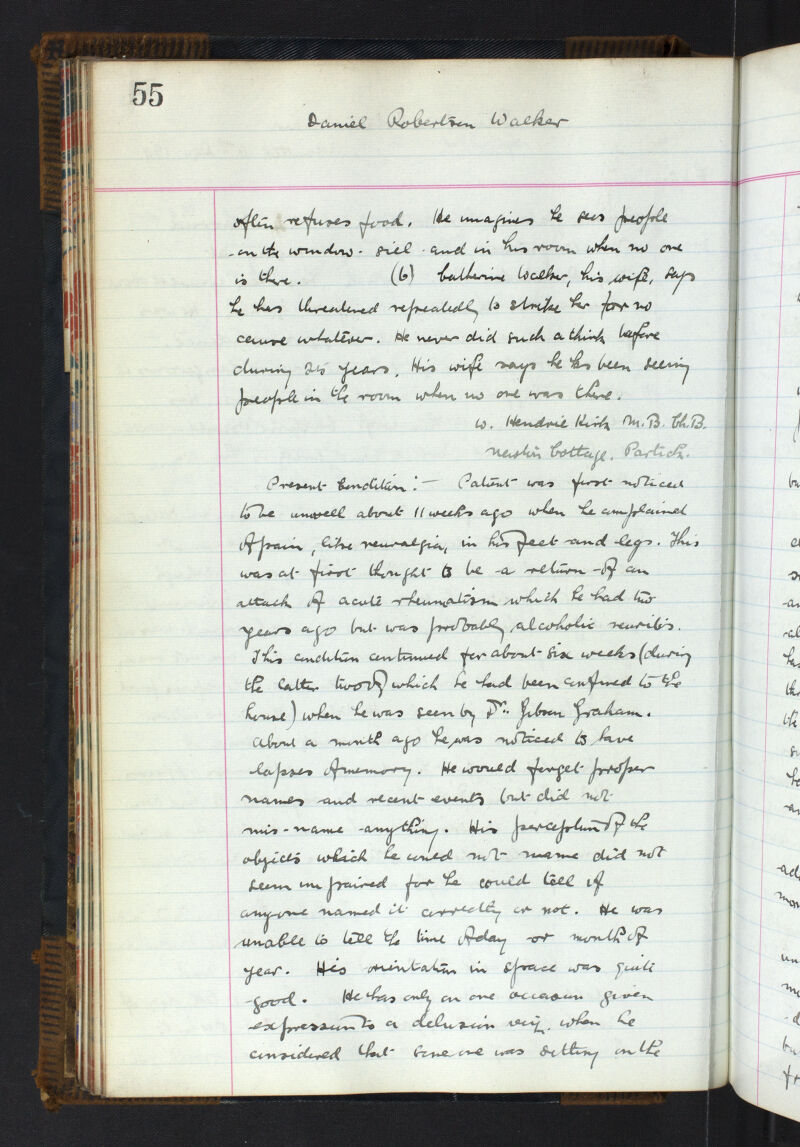 55
Daniel Robertson Walker
often refuses food. He imagines he sees people
on the window-sill and in his room when no one
is there. (b) Catherine Walker, his wife, says
he has threatened repeatedly to strike her for no
cause whatever. He never did such a think before
during 25 years. His wife says he has been seeing
people in the room when no one was there.
W. Hendrie Kirk M.B. Ch.B.
Cottage. Partick.
Present Condition:- Patient was first noticed
to be unwell about 11 weeks ago when he complained
of pain, like neuralgia, in his feet and legs. This
was at first thought to be a return of an
attack of acute rheumatism which he had two
years ago but was probably alcoholic neuritis.
This condition continued for about six weeks (during
the latter two of which he had been confined to the
house) when he was seen by Dr. Gibson Graham.
About a month ago he was noticed to have
lapses of memory. He would forget proper
names and recent events but did not
mis-name anything. His perception of the
objects which he could not name did not
seem impaired for he could tell if
anyone named it correctly or not. He was
unable to tell the time of day or month of
year. His orientation in space was quite
good. He has only on one occasion given
expression to a delusion viz. when he
considered that some one was sitting on the